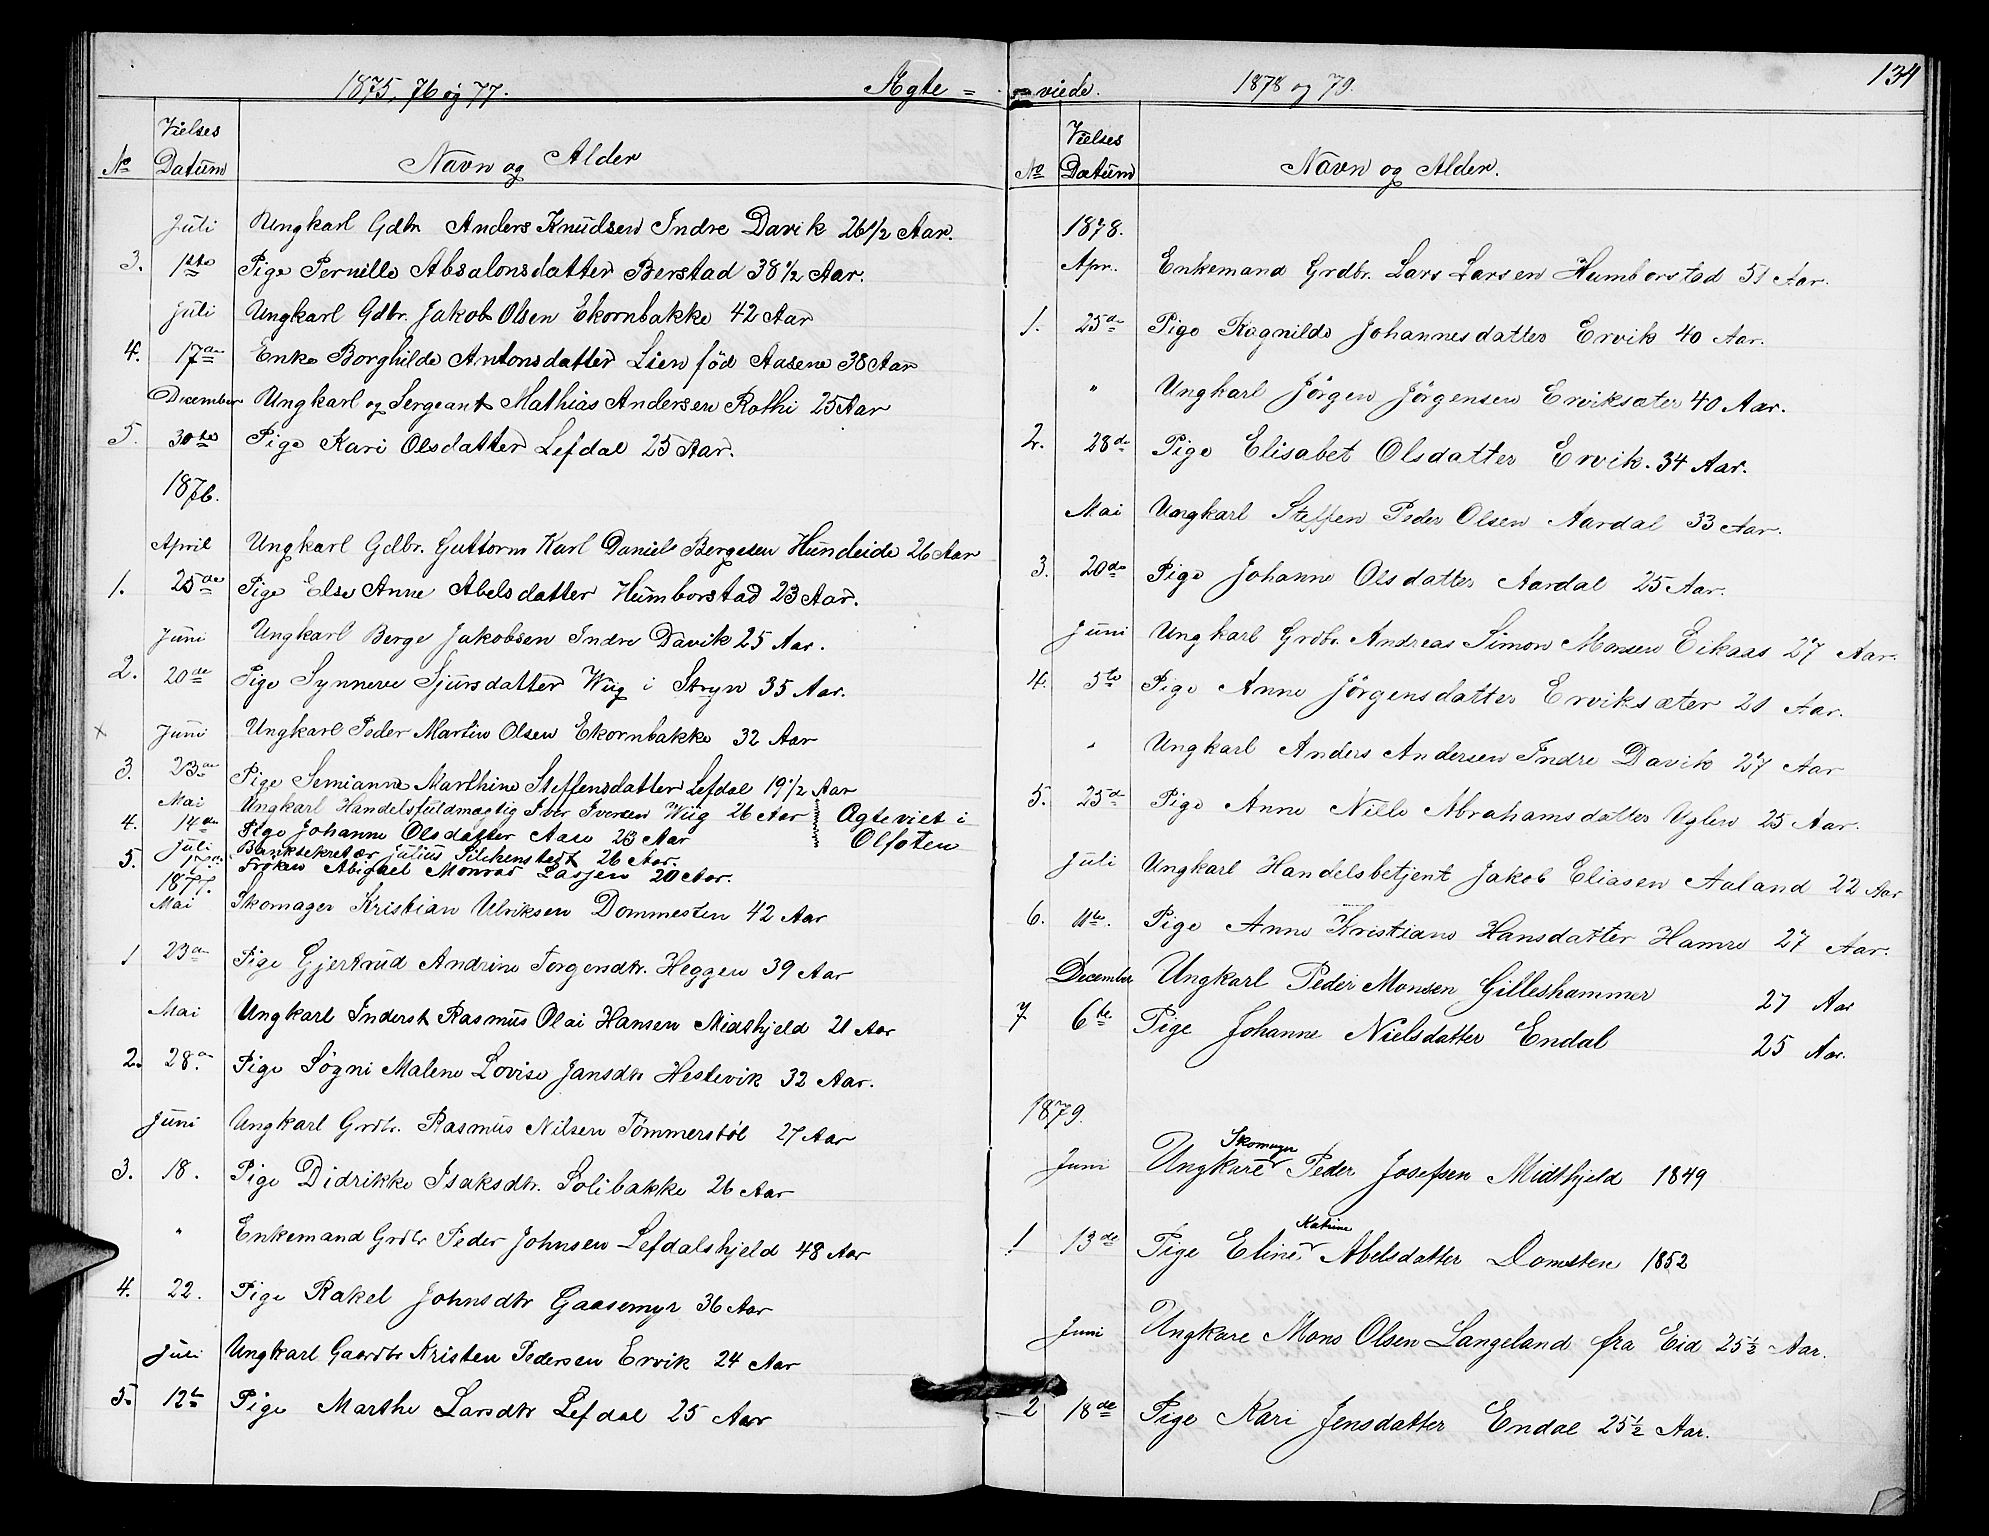 1875, 76 og 77. Ægte =
Vielses
No Datum Navn og Alder
Juli Ungkarl Gdbr. Anders Knudsen Indre Davik 26 1/2 Aar.
3. 1ste Pige Pernille Absalonsdatter Berstad 38 1/2 Aar.
Juli Ungkarl Gdbr. Jakob Olsen Ekornbakke 42 Aar
4. 17de Enke Borghilde Antonsdatter Lien fød Aasene 38 Aar
December Ungkarl og Sergeant Mathias Andersen Rothi 25 Aar
5. 30te Pige Kari Olsdatter Lefdal 25 Aar.
1876.
April Ungkarl Gdbr. Guttorm Karl Daniel Bergesen Hundeide 26 Aar
1. 25de Pige Else Anne Abelsdatter Humborstad 23 Aar.
Juni Ungkarl Berge Jakobsen Indre Davik 25 Aar.
2. 20de Pige Synneve Sjursdatter Wiig i Stryn 35 Aar.
x Juni Ungkarl Peder Martin Olsen Ekornbakke 32 Aar
3. 23de Pige Semianne Marthine Steffensdatter Lefdal 19 1/2 Aar
Mai Ungkarl Handelsfuldmægtig Iver Iversen Wiig 26 Aar Ægteviet i
4. 14de Pige Johanne Olsdatter Aase 23 Aar Olfoten
Juli Banksekretær Julius 26 Aar.
5. Frøken Abigael Monrad 20 Aar.
1877.
Mai Skomager Kristian Ulriksen Dommesten 42 Aar
1 23de Pige Gjertrud Andrine Torgersdtr. Heggen 39 Aar
Mai Ungkarl Inderst Rasmus Olai Hansen Midthjeld 21 Aar
2. 28de Pige Søgni Malene Lovise Jansdtr Hestevik 32 Aar.
Juni Ungkarl Grdbr. Rasmus Nilsen Tømmerstøl 27 Aar
3. 18. Pige Didrikke Isaksdtr. Solibakke 26 Aar
" Enkemand Grdbr Peder Johnsen Lefdalshjeld 48 Aar
4. 22. Pige Rakel Johnsdtr Gaasemyr 36 Aar
Juli Ungkarl Gaardbr Kristen Pedersen Ervik 24 Aar
5. 12te Pige Marthe Larsdtr Lefdal 25 Aar
= viede. 1878 og 79. 134
Vielses
No Datum Navn og Alder.
1878.
Apr. Enkemand Grdbr. Lars Larsen Humborstad 51 Aar.
1. 25de Pige Ragnilde Johannesdatter Ervik 40 Aar.
" Ungkarl Jörgen Jörgensen Erviksæter 40 Aar.
2. 28de Pige Elisabet Olsdatter Ervik. 34 Aar.
Mai Ungkarl Steffen Peder Olsen Aardal 33 Aar.
3. 20de Pige Johanne Olsdatter Aardal 25 Aar.
Juni Ungkarl Grdbr. Andreas Simon Monsen Eikaas 27 Aar.
4. 5te Pige Anne Jörgensdatter Erviksæter 21 Aar.
" Ungkarl Anders Andersen Indre Davik 27 Aar
5. 25de Pige Anne Nille Abrahamsdatter Uglen 25 Aar.
Juli Ungkarl Handelsbetjent Jakob Eliasen Aaland 22 Aar
6. 11te. Pige Anne Kristiane Hansdatter Hamre 27 Aar.
December Ungkarl Peder Monsen Gilleshammer 27 Aar
7 6te Pige Johanne Nielsdatter Endal 25 Aar.
1879.
Skomager
Juni Ungkarl Peder Josefsen Midthjeld 1849
Katrine
1 13de Pige Eline Abelsdatter Domsten 1852
Juni Ungkarl Mons Olsen Langeland fra Eid 25 1/2 Aar.
2 18de Pige Kari Jensdatter Endal 25 1/2 Aar.